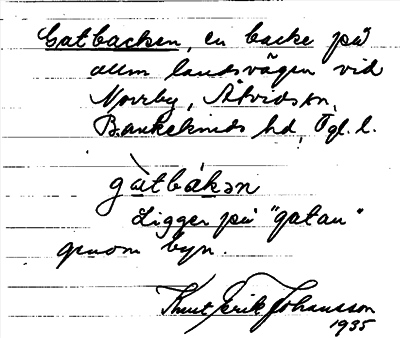 Gatbacken, en backe på
allm landsvägen vid
Norrby, Åtvids sn,
Bankekinds hd, Ögl. l.
gàtbákən
Ligger på "gatan"
genom byn.
Knut Erik Johansson
1935